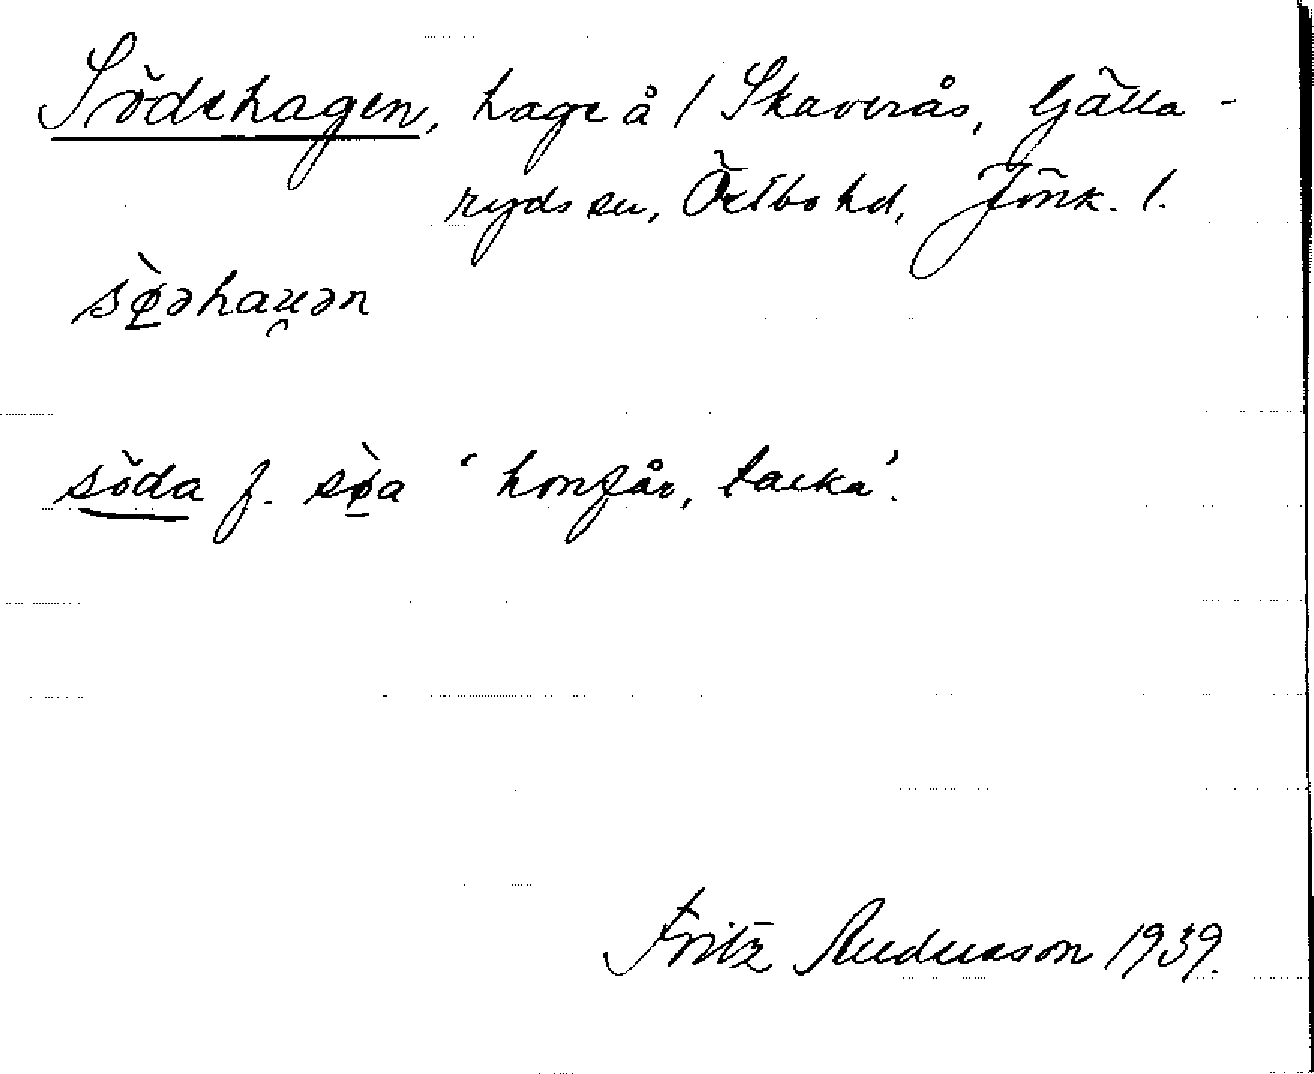 Södehagen, hage å 1 Skaverås, Gälla-
ryds sn, Östbo hd, Jönk. l.
sø̀əhau̯ən
söda f. sø̀a ‘honfår, tacka’.
Fritz Andersson 1939.